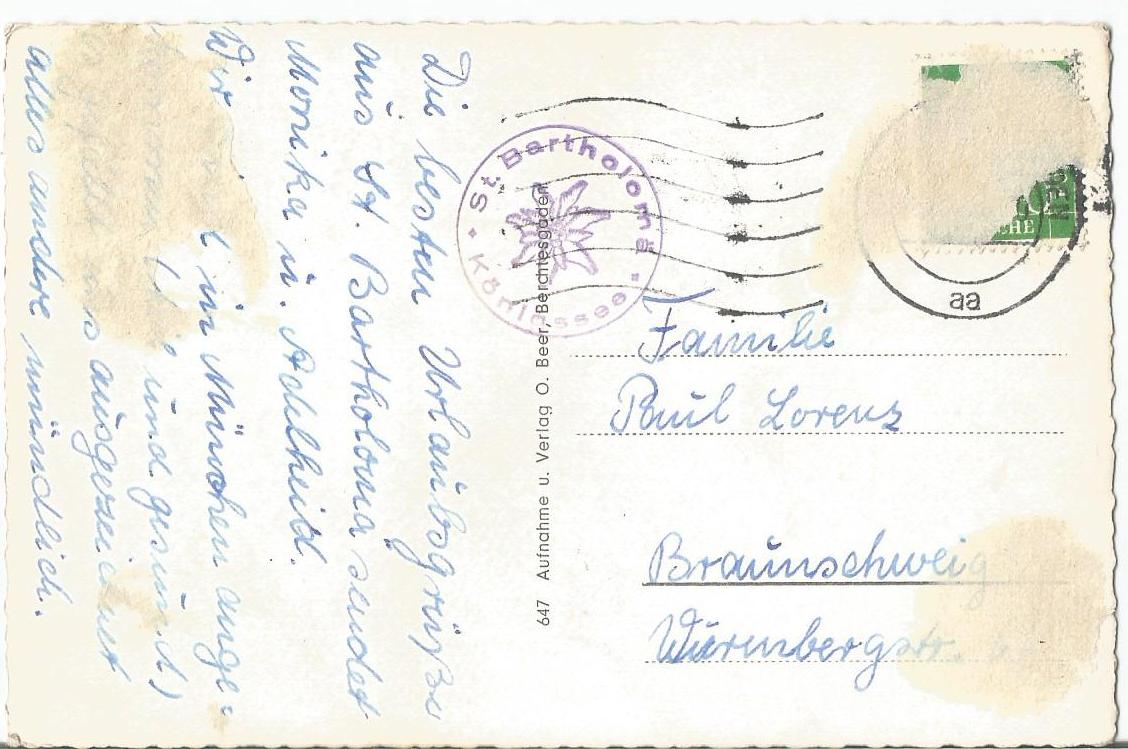 Die besten Urlaubsgrüße
aus St. Bartholomä sendet
Monika u. Adelheid.
Wir in München ange-
und gesund)
ausgezeichnet
alles andere mündlich.
St. Bartholomä
Königssee
647 Aufnahme u. Verlag O. Beer, Berchtesgaden
aa
Familie
Paul Lorenz
Braunschweig